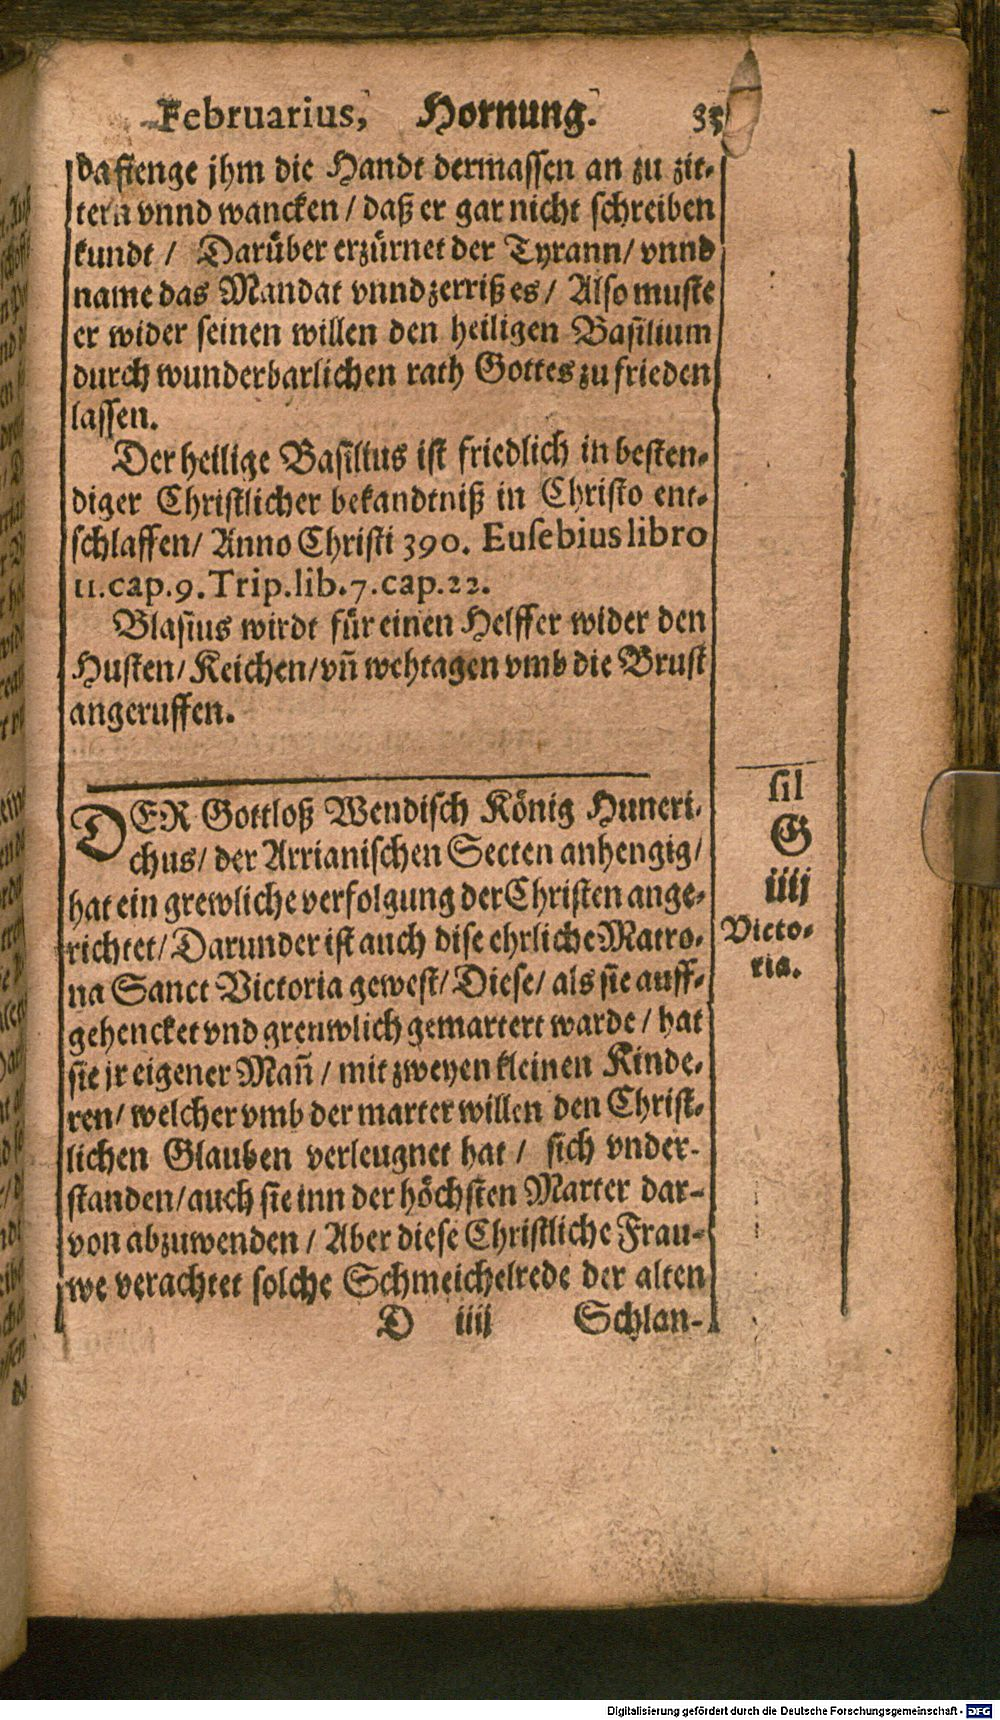 Februarius, Hornung. 35
da fienge jhm die Handt dermassen an zu zit-
tern vnnd wancken / daß er gar nicht schreiben
kundt / Darüber erzürnet der Tyrann / vnnd
name das Mandat vnnd zerriß es / Also muste
er wider seinen willen den heiligen Basilium
durch wunderbarlichen rath Gottes zu frieden
lassen.
Der heilige Basilius ist friedlich in besten-
diger Christlicher bekandtniß in Christo ent-
schlaffen / Anno Christi 390. Eusebius libro
11. cap. 9. Trip. lib. 7. cap. 22.
Blasius wirdt für einen Helffer wider den
Husten / Keichen / vñ wehtagen vmb die Brust
angeruffen.
DER Gottloß Wendisch König Huneri-
chus / der Arrianischen Secten anhengig /
hat ein grewliche verfolgung der Christen ange-
richtet / Darunder ist auch dise ehrliche Matro-
na Sanct Victoria gewest / Diese / als sie auff-
gehencket vnd greuwlich gemartert warde / hat
sie jr eigener Mañ / mit zweyen kleinen Kinde-
ren / welcher vmb der marter willen den Christ-
lichen Glauben verleugnet hat / sich vnder-
standen / auch sie inn der höchsten Marter dar-
von abzuwenden / Aber diese Christliche Frau-
we verachtet solche Schmeichelrede der alten
D iiij Schlan-
sil
G
iiij
Victo-
ria.
Digitalisierung gefördert durch die Deutsche Forschungsgemeinschaft - DFG